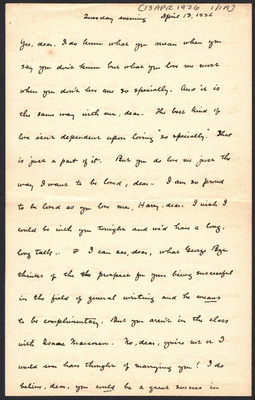 (13 APR 1926 1/1A)
Tuesday evening April 13, 1926
Yes, dear, I do know what you mean when you
say you don't know but what you love me most
when you don't love me so specially. And it is
the same way with me, dear. The best kind of
love isn't dependent upon loving "so specially." That
is just a part of it. But you do love me just the
way I want to be loved, dear - I am so proud
to be loved as you love me, Harry, dear. I wish I
could be with you tonight and we'd have a long,
long talk.. I can see, dear, what George
thinks of the prospect for your being successful
in the field of general writing and he means
to be complimentary. But you aren't in the class
with Isaac Marcosson. No, dear, you're not or I
would ever have thought of marrying you! I do
believe, dear, you could be a great success in